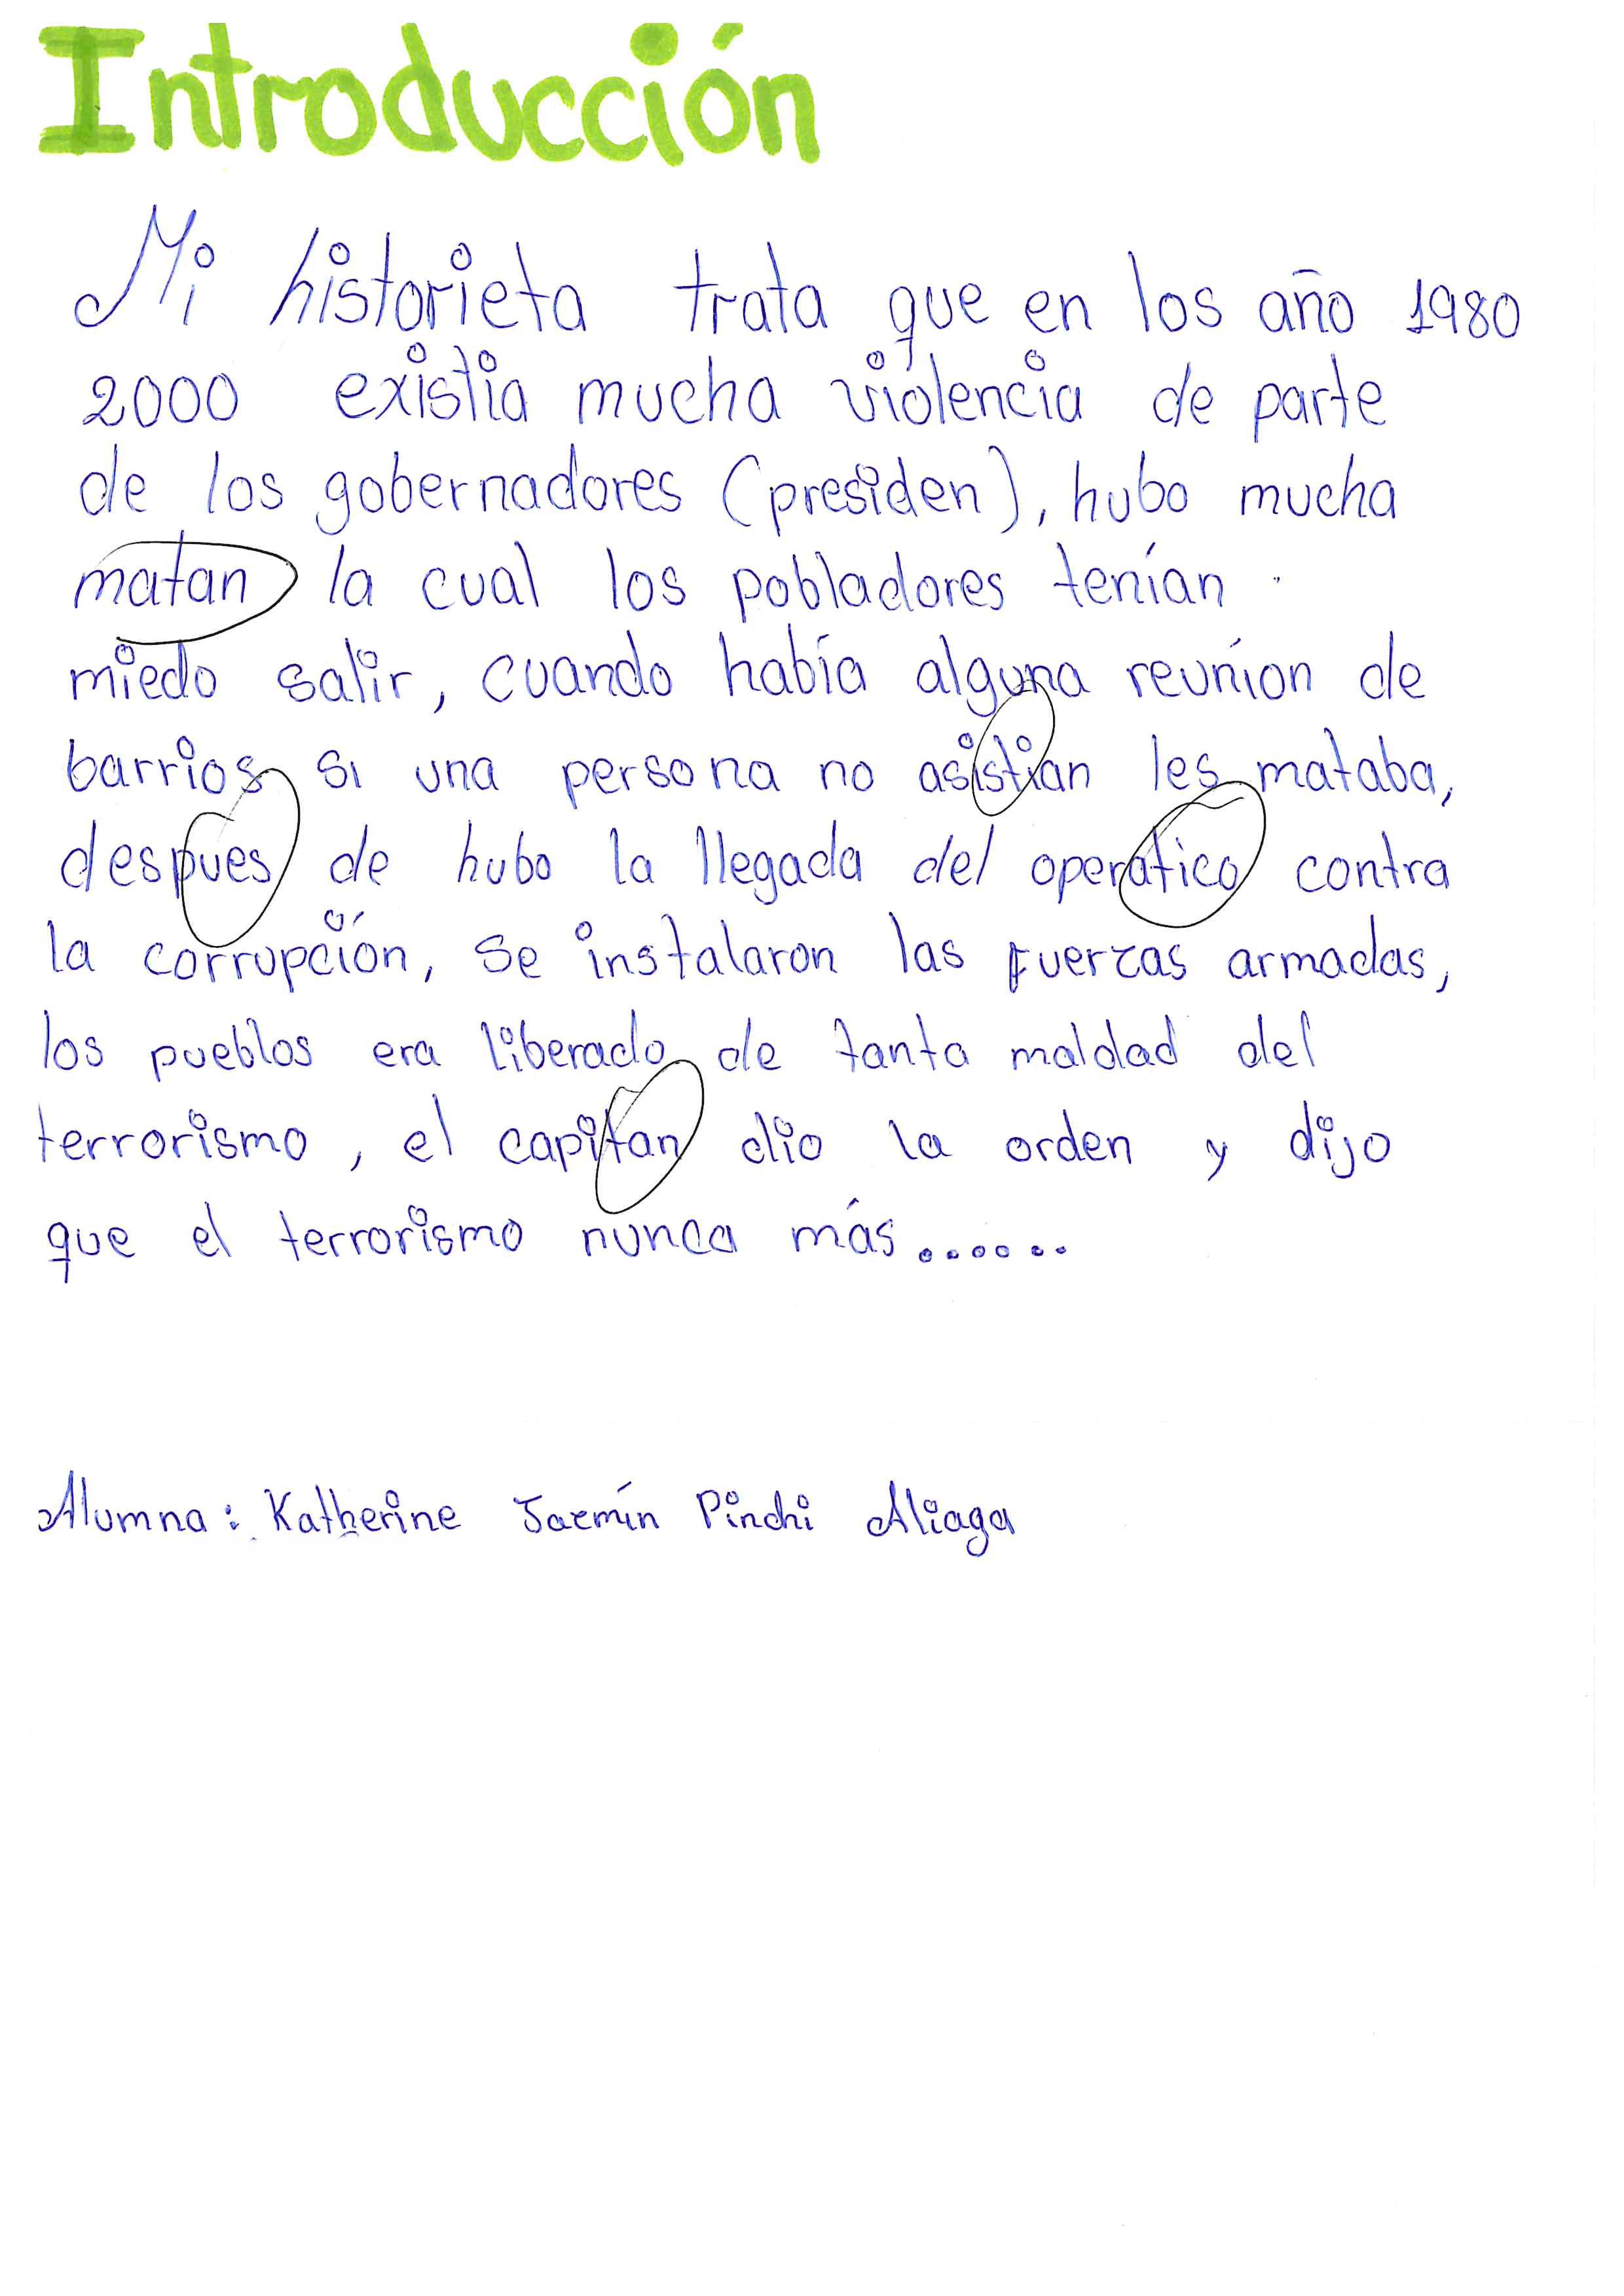 Introducción
Mi historieta trata que en los año 1980
2000 existia mucha violencia de parte
de los gobernadores (presiden), hubo mucha
matan la cual los pobladores tenían
miedo salir, cuando había alguna reuníon de
barrios si una persona no asistian les mataba,
despues de hubo la llegada del operatico contra
la corrupción, se instalaron las fuerzas armadas,
los pueblos era liberado de tanta maldad del
terrorismo, el capitan dio la orden y dijo
que el terrorismo nunca más.......
Alumna: Katherine Jazmín Pinchi Aliaga